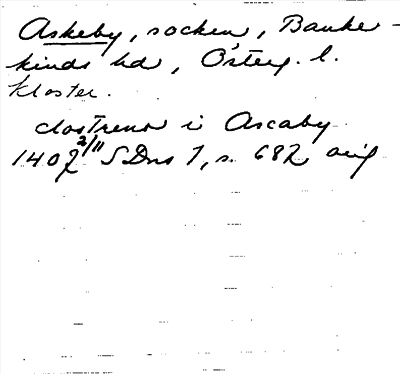 Askeby, socken, Banke-
kinds hd, Österg. l.
Kloster.
clostreno i Ascaby
1402 2/11 SDns 1, s. 682 orig